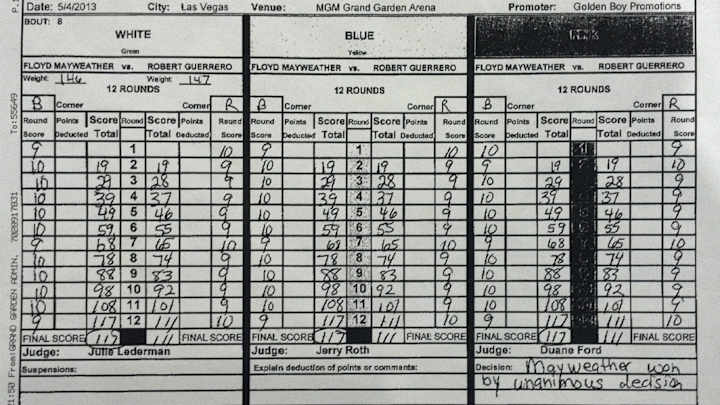 Date: 5/4/2013 City: Las Vegas Venue: MGM Grand Garden Arena Promoter: Golden Boy Promotions
BOUT: 8
WHITE BLUE
Green Yellow
FLOYD MAYWEATHER vs. ROBERT GUERRERO FLOYD MAYWEATHER vs. ROBERT GUERRERO FLOYD MAYWEATHER vs. ROBERT GUERRERO
Weight: 146 Weight: 147
12 ROUNDS 12 ROUNDS 12 ROUNDS
B Corner Corner R B Corner Corner R B Corner Corner R
Round Points Score Round Score Points Round Round Points Score Round Score Points Round Round Points Score Round Score Points Round
Score Deducted Total Total Deducted Score Score Deducted Total Total Deducted Score Score Deducted Total Total Deducted Score
9 1 10 9 1 10 10 9
10 19 2 19 9 10 19 2 19 9 9 19 19 10
10 29 3 28 9 10 29 3 28 9 10 29 28 9
10 39 4 37 9 10 39 4 37 9 10 39 37 9
10 49 5 46 9 10 49 5 46 9 10 49 46 9
10 59 6 55 9 10 59 6 55 9 10 59 55 9
9 68 7 65 10 9 68 7 65 10 9 68 65 10
10 78 8 74 9 10 78 8 74 9 10 78 74 9
10 88 9 83 9 10 88 9 83 9 10 88 83 9
10 98 10 92 9 10 98 10 92 9 10 98 92 9
10 108 11 101 9 10 108 11 101 9 10 108 101 9
9 117 12 111 10 9 117 12 111 10 9 117 111 10
FINAL SCORE 117 111 FINAL SCORE FINAL SCORE 117 111 FINAL SCORE FINAL SCORE 117 111 FINAL SCORE
Judge: Julie Lederman Judge: Jerry Roth Judge: Duane Ford
Suspensions: Explain deduction of points or comments: Decision: Mayweather won
by unanimous decision
From:GRAND GARDEN ADMIN. 7028917831 To:55649